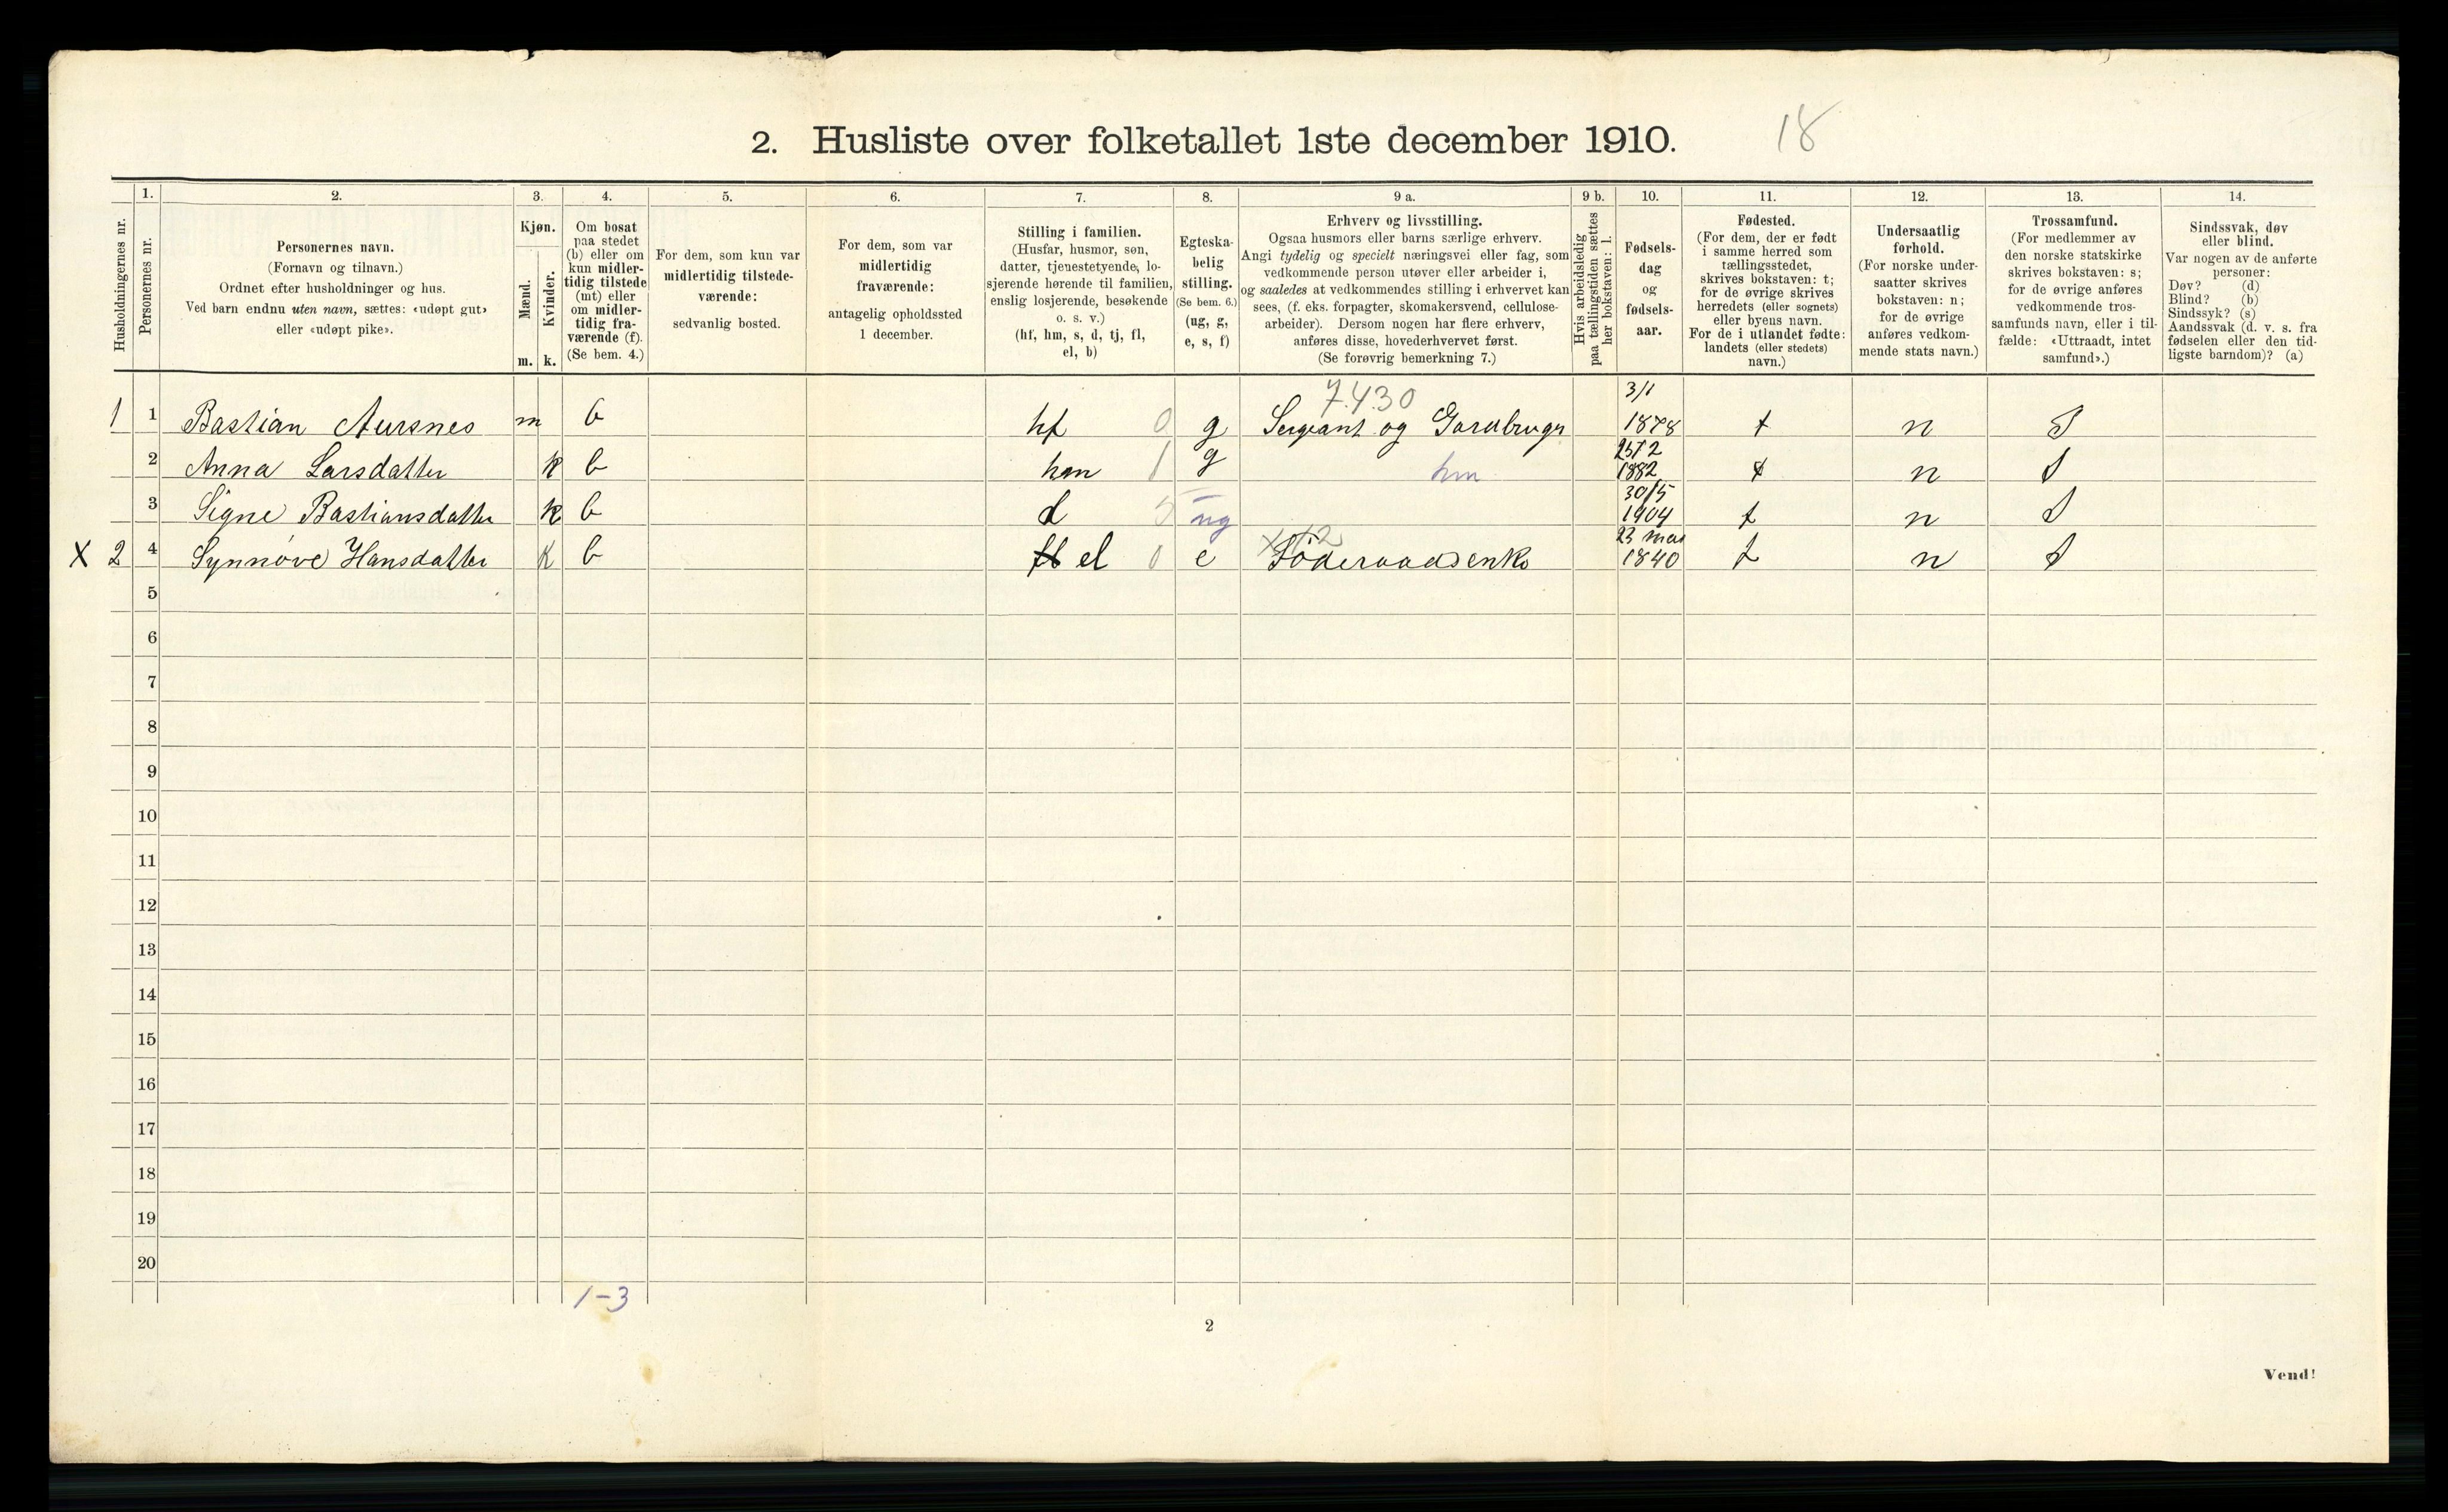 2. Husliste over folketallet 1ste december 1910. 18
Husholdningernes nr.
1. Personernes nr.
2. Personernes navn.
(Fornavn og tilnavn.)
Ordnet efter husholdninger og hus.
Ved barn endnu uten navn, sættes: «udøpt gut»
eller «udøpt pike».
3. Kjøn.
Mænd. m.
Kvinder. k.
4. Om bosat
paa stedet
(b) eller om
kun midler-
tidig tilstede
(mt) eller
om midler-
tidig fra-
værende (f).
(Se bem. 4.)
5. For dem, som kun var
midlertidig tilstede-
værende:
sedvanlig bosted.
6. For dem, som var
midlertidig
fraværende:
antagelig opholdssted
1 december.
7. Stilling i familien.
(Husfar, husmor, søn,
datter, tjenestetyende, lo-
sjerende hørende til familien,
enslig losjerende, besøkende
o. s. v.)
(hf, hm, s, d, tj, fl,
el, b)
8. Egteska-
belig
stilling.
(Se bem. 6.)
(ug, g,
e, s, f)
9 a. Erhverv og livsstilling.
Ogsaa husmors eller barns særlige erhverv.
Angi tydelig og specielt næringsvei eller fag, som
vedkommende person utøver eller arbeider i,
og saaledes at vedkommendes stilling i erhvervet kan
sees, (f. eks. forpagter, skomakersvend, cellulose-
arbeider). Dersom nogen har flere erhverv,
anføres disse, hovederhvervet først.
(Se forøvrig bemerkning 7.)
9 b. Hvis arbeidsledig
paa tællingstiden sættes
her bokstaven: l.
10. Fødsels-
dag
og
fødsels-
aar.
11. Fødested.
(For dem, der er født
i samme herred som
tællingsstedet,
skrives bokstaven: t;
for de øvrige skrives
herredets (eller sognets)
eller byens navn.
For de i utlandet fødte:
landets (eller stedets)
navn.)
12. Undersaatlig
forhold.
(For norske under-
saatter skrives
bokstaven: n;
for de øvrige
anføres vedkom-
mende stats navn.)
13. Trossamfund.
(For medlemmer av
den norske statskirke
skrives bokstaven: s;
for de øvrige anføres
vedkommende tros-
samfunds navn, eller i til-
fælde: «Uttraadt, intet
samfund».)
14. Sindssvak, døv
eller blind.
Var nogen av de anførte
personer:
Døv? (d)
Blind? (b)
Sindssyk? (s)
Aandssvak (d. v. s. fra
fødselen eller den tid-
ligste barndom)? (a)
7.430 3/1
1 1 Bastian Aursnes m b hf 0 g Sergeant og Gardbruger 1878 t n S
2 Anna Larsdatter k b hm 1 g hm 1882 t n S
30/5
3 Signe Bastiansdatter k b d 5 ug 1904 t n S
23 mai
X 2 4 Synnøve Hansdatter k b el 0 e Föderaadsenke 1840 t n S
5
6
7
8
9
10
11
12
13
14
15
16
17
18
19
20
1-3
2
Vend!